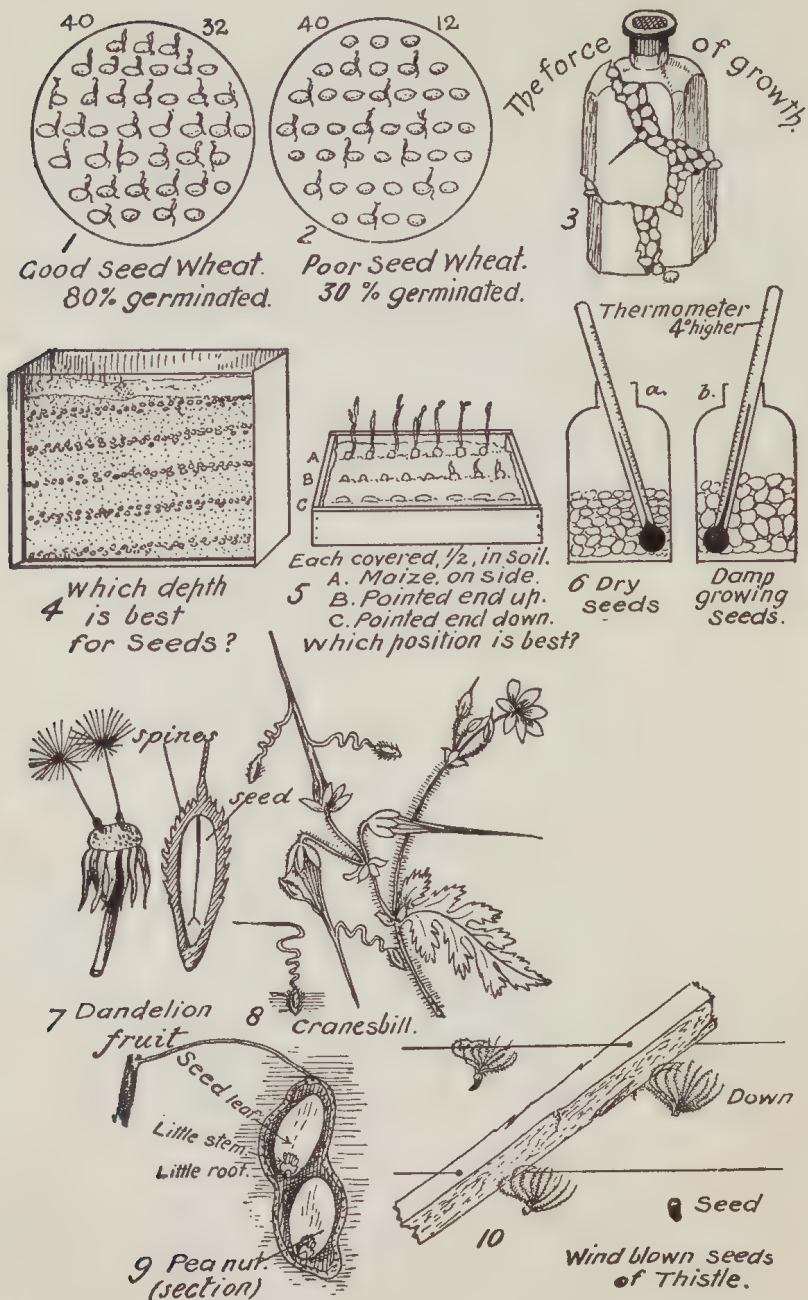 40 32
1
Good seed Wheat.
80% germinated.
40 12
2
Poor Seed Wheat.
30 % germinated.
The force of growth.
3
4 Which depth
is best
for Seeds?
A
B
C
Each covered, 1/2, in soil.
5 A. Maize, on side.
B. Pointed end up.
C. Pointed end down.
Which position is best?
Thermometer
4° higher
a.
b.
6 Dry
seeds
Damp
growing
Seeds.
spines
seed
7 Dandelion
fruit
8 Cranesbill.
Seed leaf
Little stem
Little root.
9 Pea nut.
(section)
Down
Seed
10
Wind blown seeds
of Thistle.